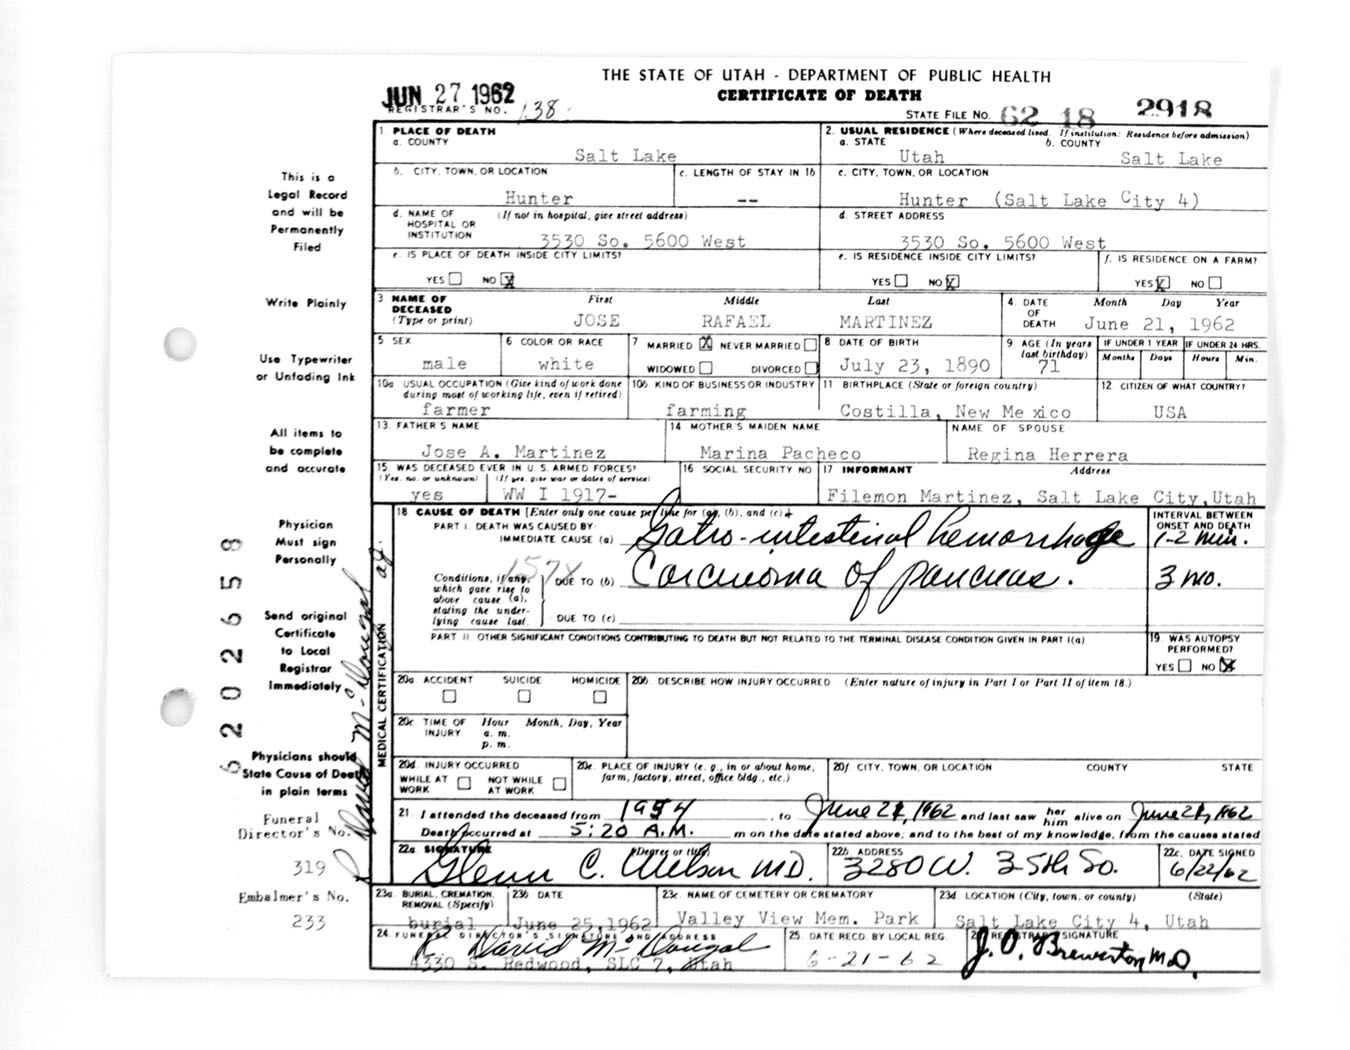 THE STATE OF UTAH - DEPARTMENT OF PUBLIC HEALTH
CERTIFICATE OF DEATH
JUN 27 1962
REGISTRAR'S NO. 138.
STATE FILE NO. 62 18 2918
1. PLACE OF DEATH
a. COUNTY
Salt Lake
2. USUAL RESIDENCE (Where deceased lived. If institution: Residence before admission)
a. STATE b. COUNTY
Utah Salt Lake
b. CITY, TOWN, OR LOCATION c. LENGTH OF STAY IN 1b
Hunter --
c. CITY, TOWN, OR LOCATION
Hunter (Salt Lake City 4)
d. NAME OF HOSPITAL OR INSTITUTION (If not in hospital, give street address)
3530 So. 5600 West
d. STREET ADDRESS
3530 So. 5600 West
e. IS PLACE OF DEATH INSIDE CITY LIMITS?
YES NO X
e. IS RESIDENCE INSIDE CITY LIMITS?
YES NO X
f. IS RESIDENCE ON A FARM?
YES X NO
3 NAME OF DECEASED (Type or print) First Middle Last
JOSE RAFAEL MARTINEZ
4. DATE OF DEATH Month Day Year
June 21, 1962
5 SEX
male
6 COLOR OR RACE
white
7 MARRIED X NEVER MARRIED
WIDOWED DIVORCED
8 DATE OF BIRTH
July 23, 1890
9 AGE (In years last birthday)
71
IF UNDER 1 YEAR IF UNDER 24 HRS.
Months Days Hours Min.
10a USUAL OCCUPATION (Give kind of work done during most of working life, even if retired)
farmer
10b KIND OF BUSINESS OR INDUSTRY
farming
11 BIRTHPLACE (State or foreign country)
Costilla, New Mexico
12 CITIZEN OF WHAT COUNTRY?
USA
13. FATHER'S NAME
Jose A. Martinez
14 MOTHER'S MAIDEN NAME
Marina Pacheco
NAME OF SPOUSE
Regina Herrera
15 WAS DECEASED EVER IN U.S. ARMED FORCES?
(Yes, no, or unknown) (If yes, give war or dates of service)
yes WW I 1917-
16 SOCIAL SECURITY NO
17 INFORMANT Address
Filemon Martinez, Salt Lake City, Utah
18 CAUSE OF DEATH [Enter only one cause per line for (a), (b), and (c)]
INTERVAL BETWEEN ONSET AND DEATH
PART I. DEATH WAS CAUSED BY:
IMMEDIATE CAUSE (a) Gatro-intestinal hemorrhage 1-2 min.
157X
Conditions, if any, which gave rise to above cause (a), stating the underlying cause last.
DUE TO (b) Carcinoma of pancreas. 3 mo.
DUE TO (c)
PART II. OTHER SIGNIFICANT CONDITIONS CONTRIBUTING TO DEATH BUT NOT RELATED TO THE TERMINAL DISEASE CONDITION GIVEN IN PART I(a)
19. WAS AUTOPSY PERFORMED?
YES NO X
20a ACCIDENT SUICIDE HOMICIDE
20b DESCRIBE HOW INJURY OCCURRED (Enter nature of injury in Part I or Part II of item 18.)
20c TIME OF INJURY Hour Month, Day, Year
a. m.
p. m.
20d. INJURY OCCURRED
WHILE AT WORK NOT WHILE AT WORK
20e. PLACE OF INJURY (e. g., in or about home, farm, factory, street, office bldg., etc.)
20f. CITY, TOWN, OR LOCATION COUNTY STATE
21. I attended the deceased from 1954, to June 21, 1962 and last saw her him alive on June 21, 1962
Death occurred at 5:20 A.M. m on the date stated above; and to the best of my knowledge, from the causes stated
22a. SIGNATURE (Degree or title)
Glenn C. Wilson M D.
22b ADDRESS
3280 W. 35th So.
22c. DATE SIGNED
6/22/62
23a. BURIAL, CREMATION, REMOVAL (Specify)
burial
23b DATE
June 25, 1962
23c. NAME OF CEMETERY OR CREMATORY
Valley View Mem. Park
23d. LOCATION (City, town, or county) (State)
Salt Lake City 4, Utah
24. FUNERAL DIRECTOR'S SIGNATURE AND ADDRESS
R. David McDougal
4330 S. Redwood, SLC 7, Utah
25. DATE RECD. BY LOCAL REG.
6-21-62
REGISTRAR'S SIGNATURE
J. O. Brewerton M D.
This is a
Legal Record
and will be
Permanently
Filed
Write Plainly
Use Typewriter
or Unfading Ink
All items to
be complete
and accurate
Physician
Must sign
Personally
Send original
Certificate
to Local
Registrar
Immediately
Physicians should
State Cause of Death
in plain terms
Funeral
Director's No.
319
Embalmer's No.
233
MEDICAL CERTIFICATION
R David McDougal
62202658